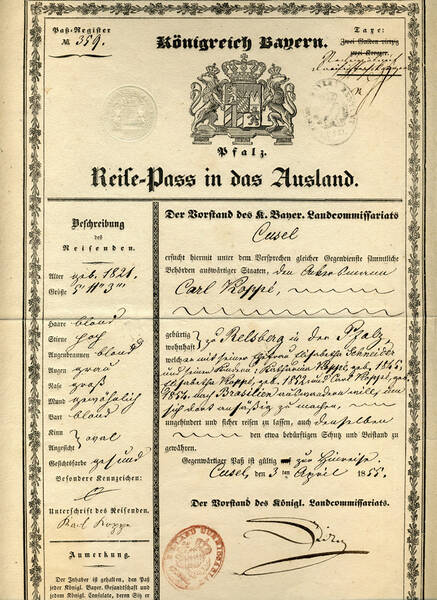 Paß-Register
№ 359.
Königreich Bayern.
Taxe:
Zwei Gulden
zwei Kreuzer.
Pfalz.
Reise-Pass in das Ausland.
Beschreibung
des
Reisenden.
Alter geb. 1821.
Größe 5' 11" 3'"
Haare blond
Stirne hoch
Augenbraunen blond
Augen grau
Nase groß
Mund gewöhnlich
Bart blond
Kinn
Angesicht } oval
Gesichtsfarbe gesund
Besondere Kennzeichen:
Unterschrift des Reisenden.
Karl Koppe
Anmerkung.
Der Inhaber ist gehalten, den Paß
jeder Königl. Bayer. Gesandtschaft und
jedem Königl. Consulate, deren Sitz er
Der Vorstand des K. Bayer. Landcommissariats
Cusel
ersucht hiermit unter dem Versprechen gleicher Gegendienste sämmtliche
Behörden auswärtiger Staaten, den
Carl Koppé,
gebürtig
wohnhaft } zu Relsberg in der Pfalz,
welcher mit seiner Ehefrau Elisabetha Schneider
und seinen Kindern: Katharina Koppé, geb. 1845,
Elisabetha Koppé, geb. 1852 und Carl Koppé, geb.
1854, nach Brasilien auswandern will, um
sich dort ansäßig zu machen,
ungehindert und sicher reisen zu lassen, auch denselben
den etwa bedürftigen Schutz und Beistand zu
gewähren.
Gegenwärtiger Paß ist gültig zur Hinreise.
Cusel, den 3ten April 1855.
Der Vorstand des Königl. Landcommissariats.